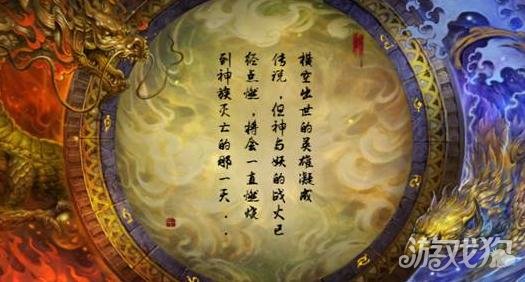 横空出世的英雄凝成
传说，但神与妖的战火已
经点燃，将会一直燃烧
到神族灭亡的那一天．．
游戏狗